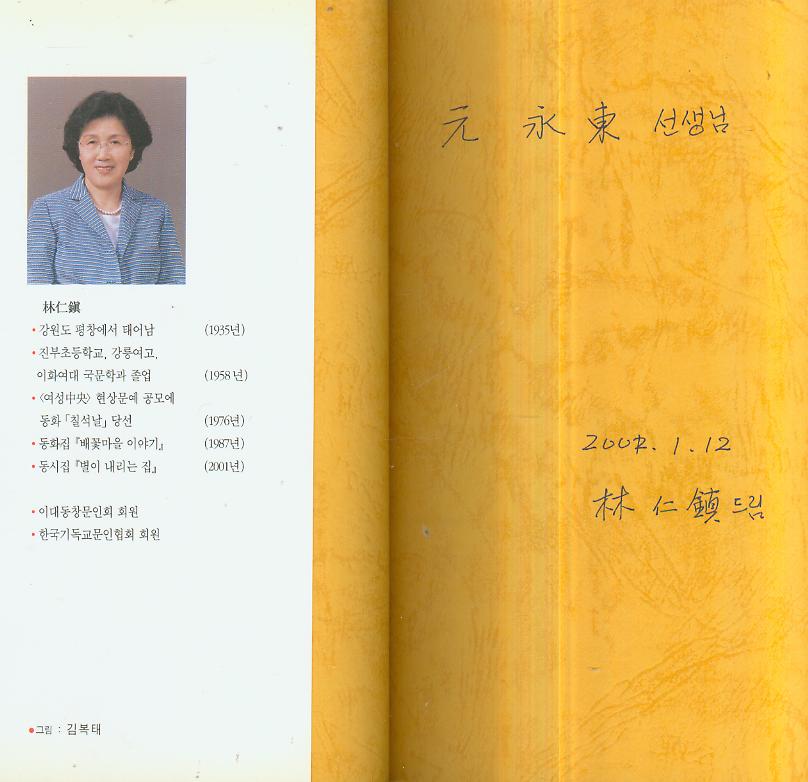 林仁鎭
• 강원도 평창에서 태어남 (1935년)
• 진부초등학교, 강릉여고,
이화여대 국문학과 졸업 (1958년)
• 〈여성中央〉 현상문예 공모에
동화 「칠석날」 당선 (1976년)
• 동화집 『배꽃마을 이야기』 (1987년)
• 동시집 『별이 내리는 집』 (2001년)
• 이대동창문인회 회원
• 한국기독교문인협회 회원
●그림 : 김복태
元 永 東 선생님
2002. 1. 12
林 仁 鎭 드림